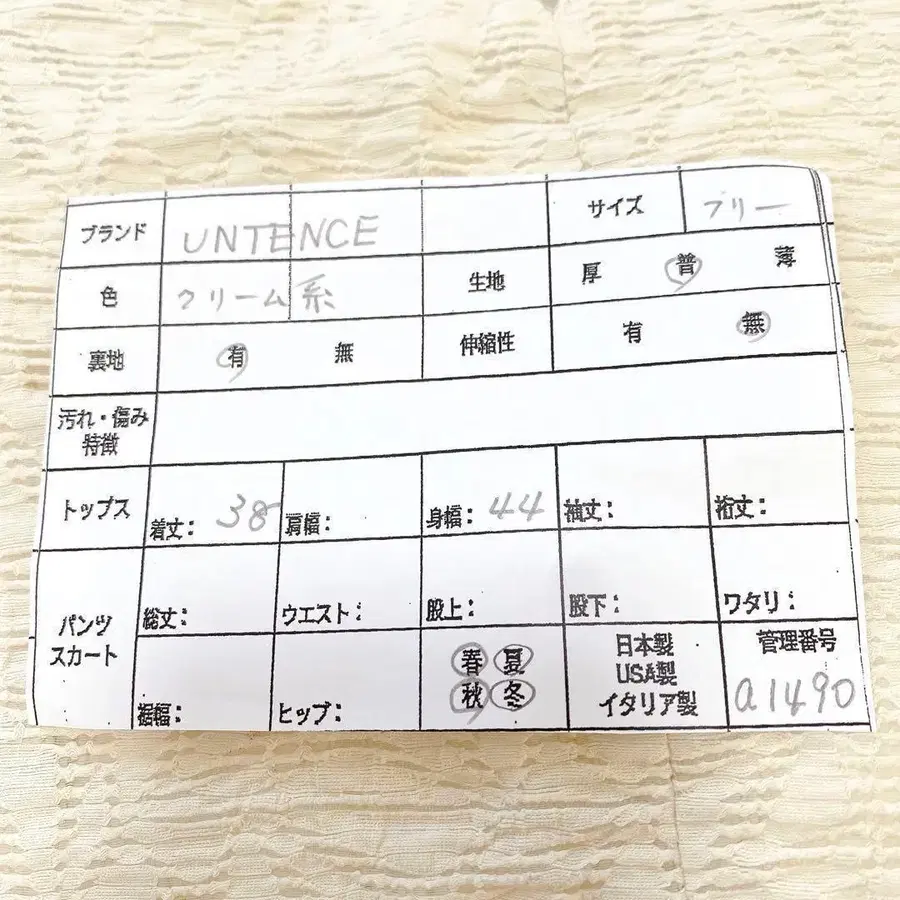 ブランド UNTENCE サイズ フリー
色 クリーム系 生地 厚 普 薄
裏地 有 無 伸縮性 有 無
汚れ・傷み
特徴
トップス 着丈: 38 肩幅: 身幅: 44 袖丈: 裄丈:
パンツ
スカート
総丈: ウエスト: 股上: 股下: ワタリ:
裾幅: ヒップ:
春 夏
秋 冬
日本製
USA製
イタリア製
管理番号
a1490